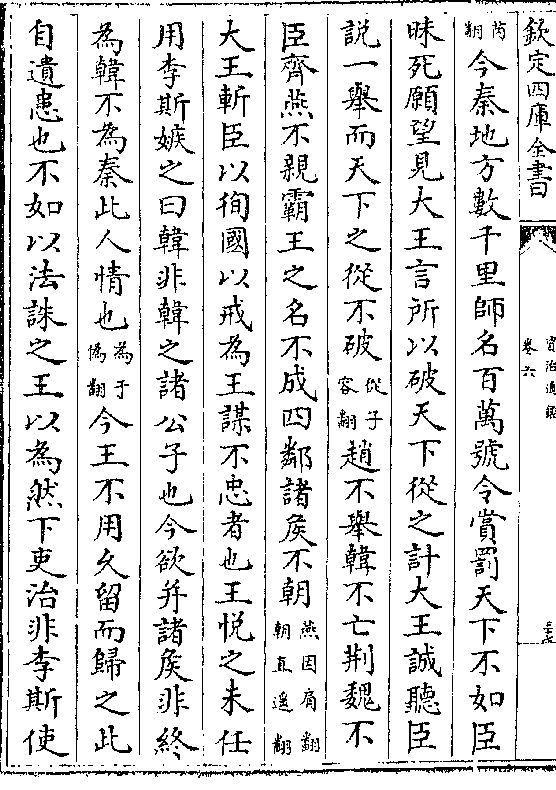 欽定四庫全書
資治通鑑
卷六
芮
翻今秦地方數千里師名百萬號令賞罰天下不如臣
昧死願望見大王言所以破天下從之計大王誠聽臣
說一舉而天下之從不破從子
容翻趙不舉韓不亡荆魏不
臣齊燕不親霸王之名不成四鄰諸侯不朝燕因肩翻
朝直遥翻
大王斬臣以徇國以戒為王謀不忠者也王悅之未任
用李斯嫉之曰韓非韓之諸公子也今欲并諸侯非終
為韓不為秦此人情也為于
偽翻今王不用久留而歸之此
自遺患也不如以法誅之王以為然下吏治非李斯使